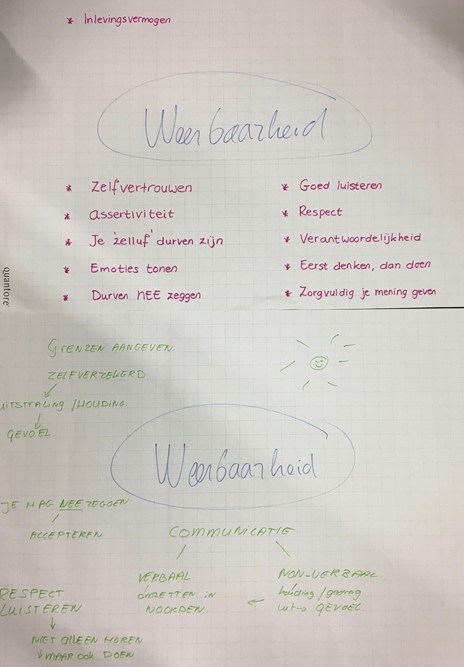 * Inlevingsvermogen
Weerbaarheid
* Zelfvertrouwen
* Assertiviteit
* Je 'zelluf' durven zijn
* Emoties tonen
* Durven NEE zeggen
* Goed luisteren
* Respect
* Verantwoordelijkheid
* Eerst denken, dan doen
* Zorgvuldig je mening geven
quantore
GRENZEN AANGEVEN.
ZELFVERZEKERD
UITSTRALING / HOUDING
GEVOEL
Weerbaarheid
JE MAG NEE ZEGGEN
ACCEPTEREN
COMMUNICATIE
VERBAAL
OMZETTEN IN
WOORDEN.
NON-VERBAAL
houding / gedrag
GEVOEL.
RESPECT
LUISTEREN
NIET ALLEEN HOREN
MAAR OOK DOEN